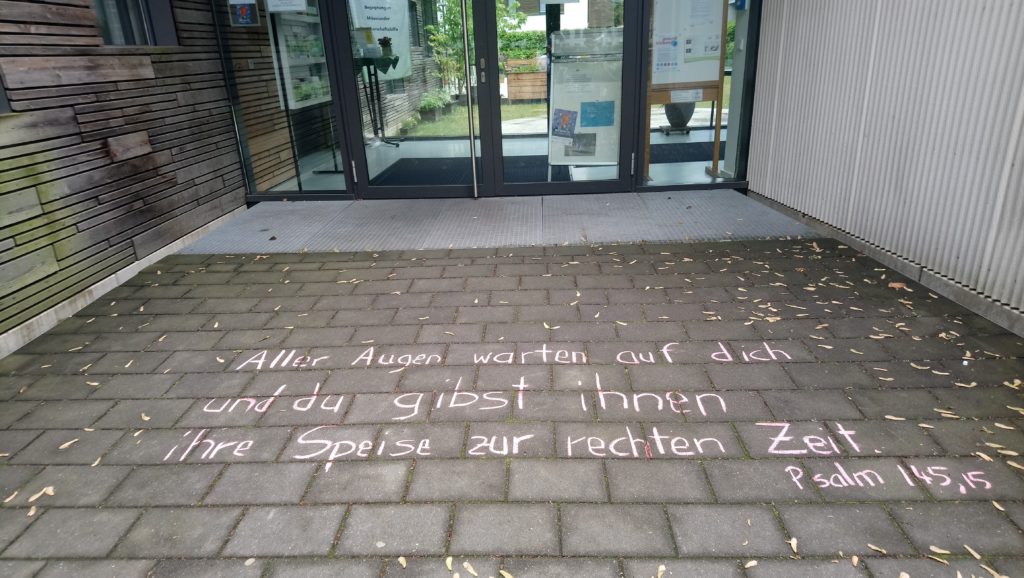 Begegnung
Miteinander
Aller Augen warten auf dich
und du gibst ihnen
ihre Speise zur rechten Zeit.
Psalm 145,15